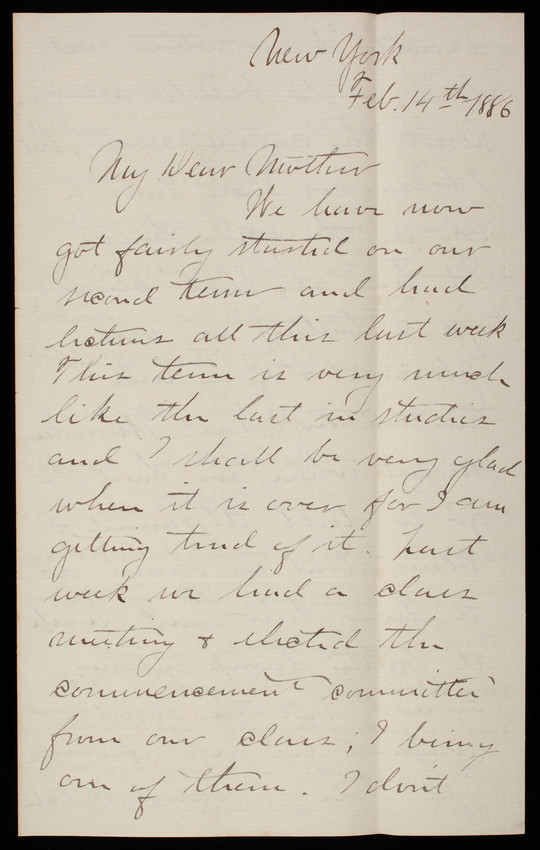 New York
Feb. 14th 1886
My Dear Mother
We have now
got fairly started on our
second term and had
lectures all this last week
This term is very much
like the last in studies
and I shall be very glad
when it is over for I am
getting tired of it. Last
week we had a class
meeting & elected the
commencement "committee"
from our class; I being
one of them. I don't